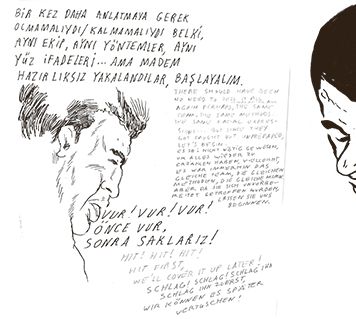 BİR KEZ DAHA ANLATMAYA GEREK
OLMAMALIYDI/KALMAMALIYDI BELKİ,
AYNI EKİP, AYNI YÖNTEMLER, AYNI
YÜZ İFADELERİ... AMA MADEM
HAZIRLIKSIZ YAKALANDILAR, BAŞLAYALIM.
THERE SHOULD HAVE BEEN
NO NEED TO
AGAIN PERHAPS, THE SAME
TEAM, THE SAME METHODS,
THE SAME FACIAL EXPRES-
SIONS... BUT SINCE THEY
GOT CAUGHT OUT UNPREPARED,
LET'S BEGIN.
ES IST NICHT NÖTIG GEWESEN,
UM ALLES WIEDER ZU
ERZÄHLEN HABEN, VIELLEICHT,
ES WAR IMMERHIN DAS
GLEICHE TEAM, DIE GLEICHEN
METHODEN, DIE GLEICHE MIMIK
ABER DA SIE SICH UNVORBE-
REITET GETROFFEN WURDEN,
LASSEN SIE UNS
BEGINNEN.
VUR! VUR! VUR!
ÖNCE VUR,
SONRA SAKLARIZ!
HIT! HIT! HIT!
HIT FIRST,
WE'LL COVER IT UP LATER!
SCHLAG! SCHLAG! SCHLAG IHN
SCHLAG IHN ZUERST,
WIR KÖNNEN ES SPÄTER
VERTUSCHEN!